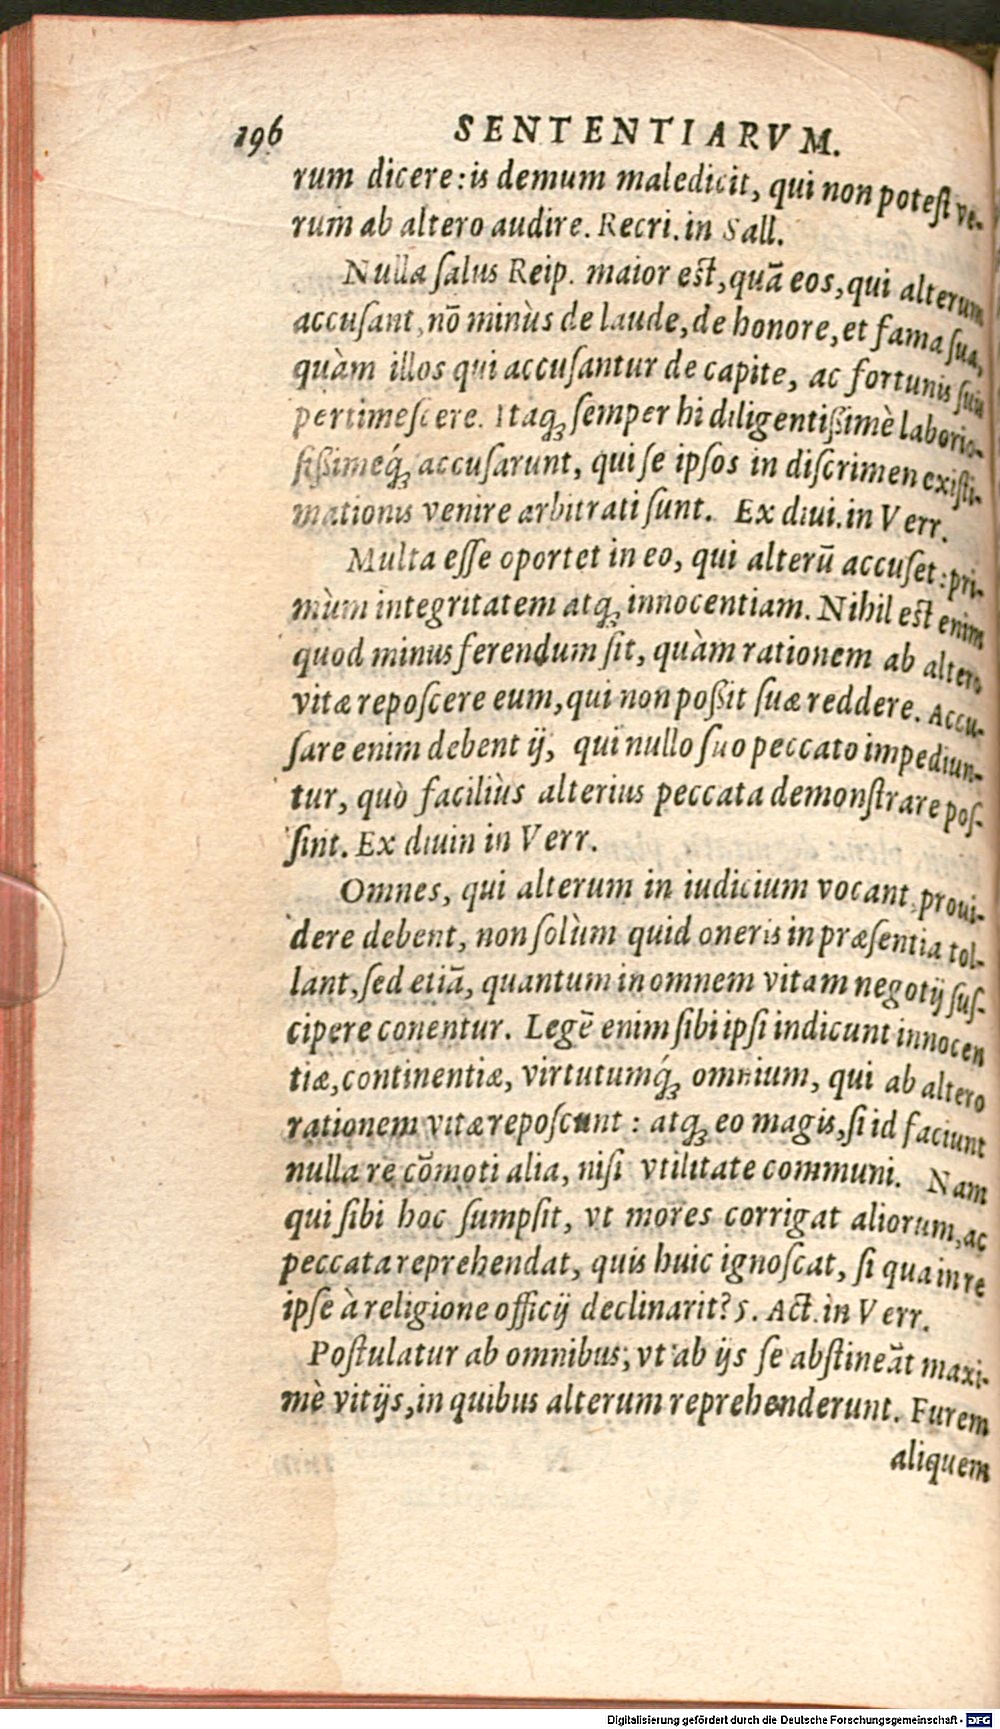 196 SENTENTIARVM.
rum dicere: is demum maledicit, qui non potest ve-
rum ab altero audire. Recri. in Sall.
Nulla salus Reip. maior est, quã eos, qui alterum
accusant, nõ minùs de laude, de honore, et fama sua,
quàm illos qui accusantur de capite, ac fortunis suis
pertimescere. Itaq; semper hi diligentißimè laborio-
sißimeq́; accusarunt, qui se ipsos in discrimen existi-
mationis venire arbitrati sunt. Ex diui. in Verr.
Multa esse oportet in eo, qui alterũ accuset: pri-
mùm integritatem atq; innocentiam. Nihil est enim
quod minus ferendum sit, quàm rationem ab altero
vitæ reposcere eum, qui non poßit suæ reddere. Accu-
sare enim debent ij, qui nullo suo peccato impediun-
tur, quò faciliùs alterius peccata demonstrare pos-
sint. Ex diuin in Verr.
Omnes, qui alterum in iudicium vocant, proui-
dere debent, non solùm quid oneris in præsentia tol-
lant, sed etiã, quantum in omnem vitam negotij sus-
cipere conentur. Legẽ enim sibi ipsi indicunt innocen
tiæ, continentiæ, virtutumq́; omnium, qui ab altero
rationem vitæ reposcunt: atq; eo magis, si id faciunt
nulla re cõmoti alia, nisi vtilitate communi. Nam
qui sibi hoc sumpsit, vt mores corrigat aliorum, ac
peccata reprehendat, quis huic ignoscat, si qua in re
ipse à religione officij declinarit? 5. Act. in Verr.
Postulatur ab omnibus, vt ab ijs se abstineãt maxi-
mè vitijs, in quibus alterum reprehenderunt. Furem
aliquem
Digitalisierung gefördert durch die Deutsche Forschungsgemeinschaft - DFG